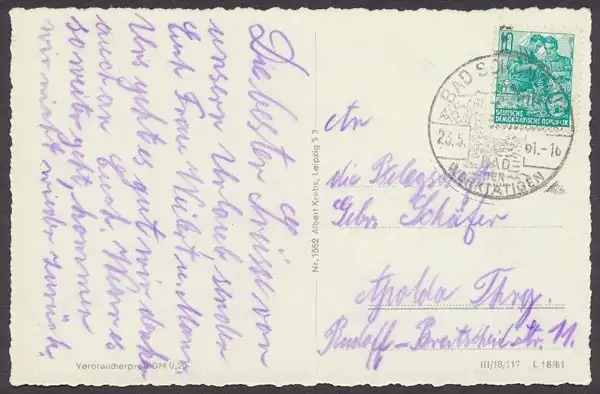 Die besten Grüße von
unserm Urlaub senden
Euch Frau
Uns geht es gut wir denken
auch an Euch. Wenn es
so weiter geht, kommen
wir nicht wieder zurück.
Verbraucherpreis DM 0,20
Nr. 1552 Albert Krebs, Leipzig S 3
10
DEUTSCHE
DEMOKRATISCHE REPUBLIK
BAD
23.5.
61.-16
BAD
DER
WERKTÄTIGEN
An
die
Gebr. Schäfer
Apolda Thrg.
Rudolf-Breitscheid-Str. 11.
III/18/117 L 18/61